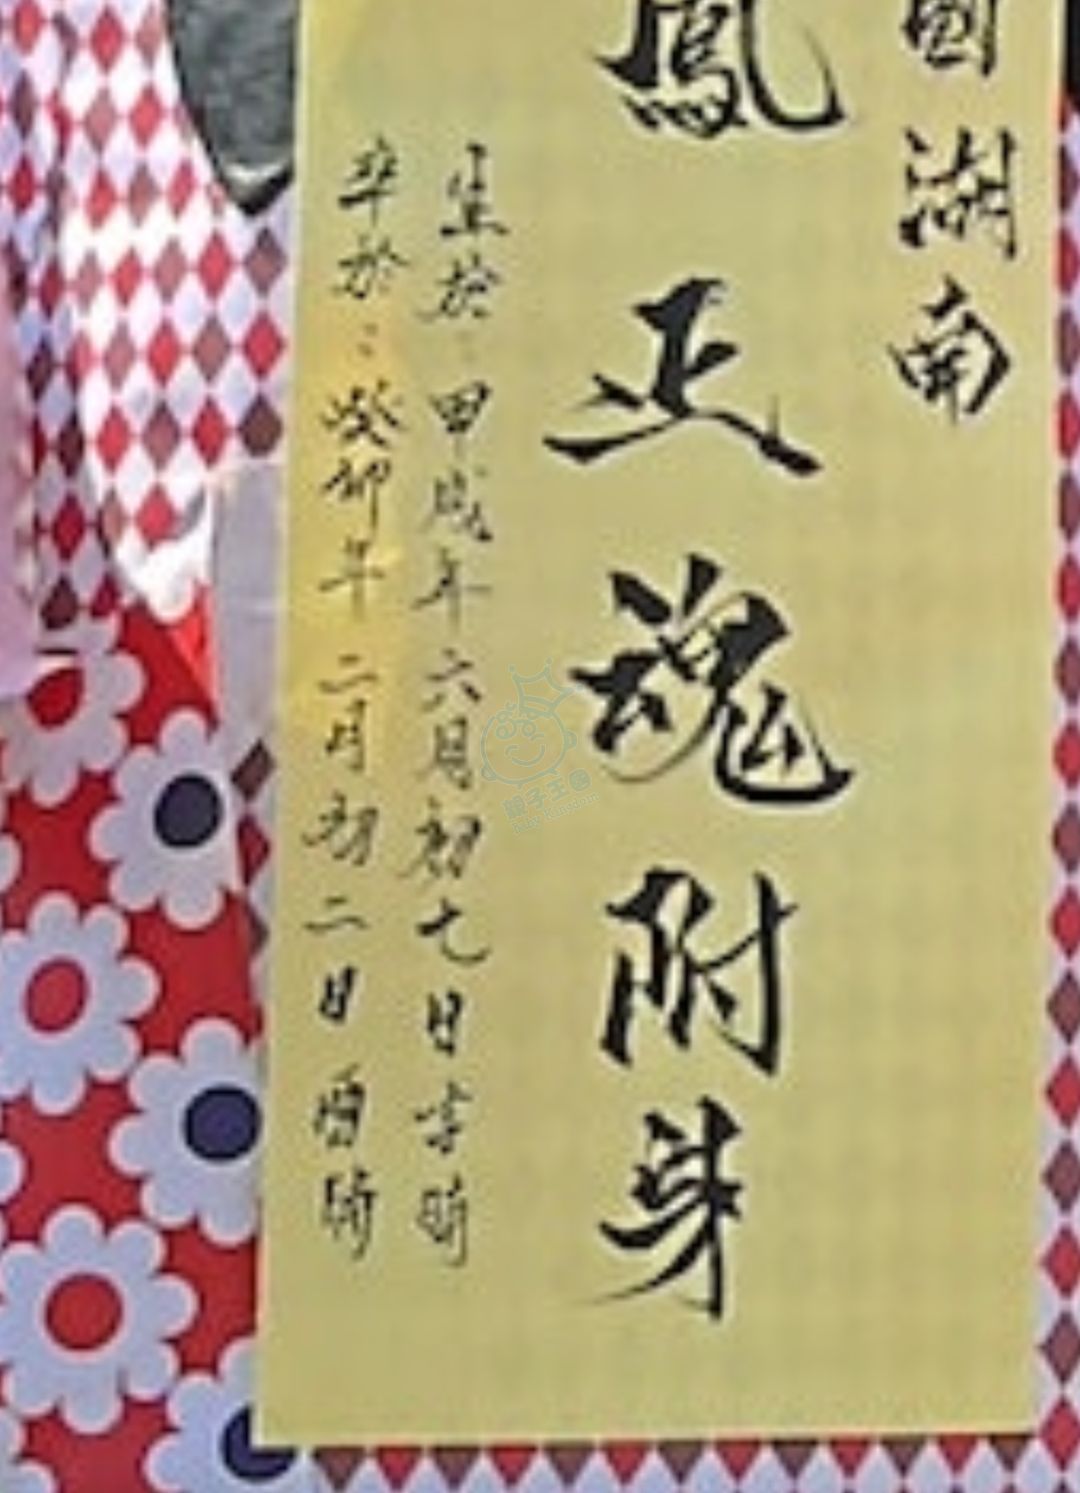 國湖南
鳳正魂附身
生於：甲戌年六月初七日吉時
卒於：癸卯年二月初二日酉時
親子王國
Baby Kingdom